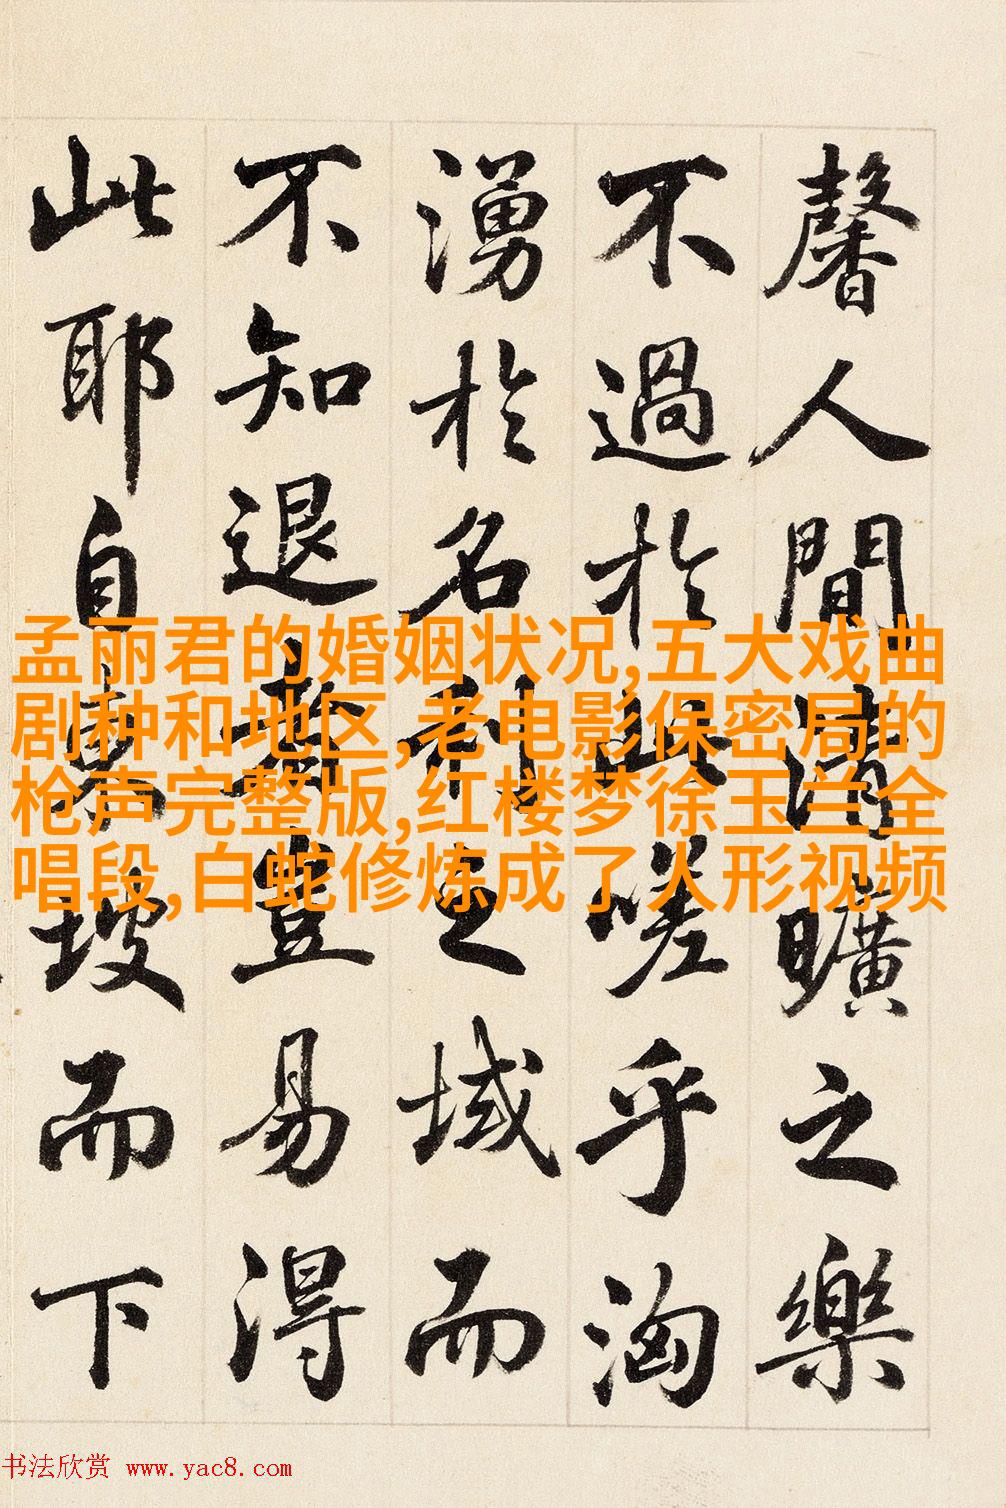 馨人間清曠之樂
不過於此嗟乎洶
湧於名利之域而
不知退者豈易得
此耶自東坡而下
孟丽君的婚姻状况,五大戏曲
剧种和地区,老电影保密局的
枪声完整版,红楼梦徐玉兰全
唱段,白蛇修炼成了人形视频
书法欣赏 www.yac8.com